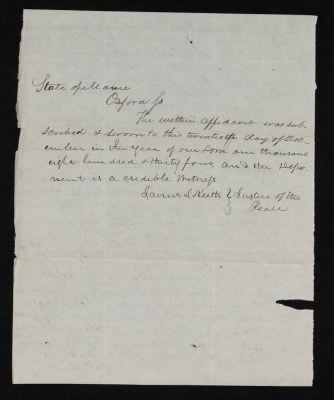 State of Maine
Oxford Ss
The within affidavit was sub-
scribed & sworn to this twentieth day of Dec-
ember in the year of our Lord one thousand
eight hundred & thirty four and the depo-
nent is a credible witness
Justice of the
Peace